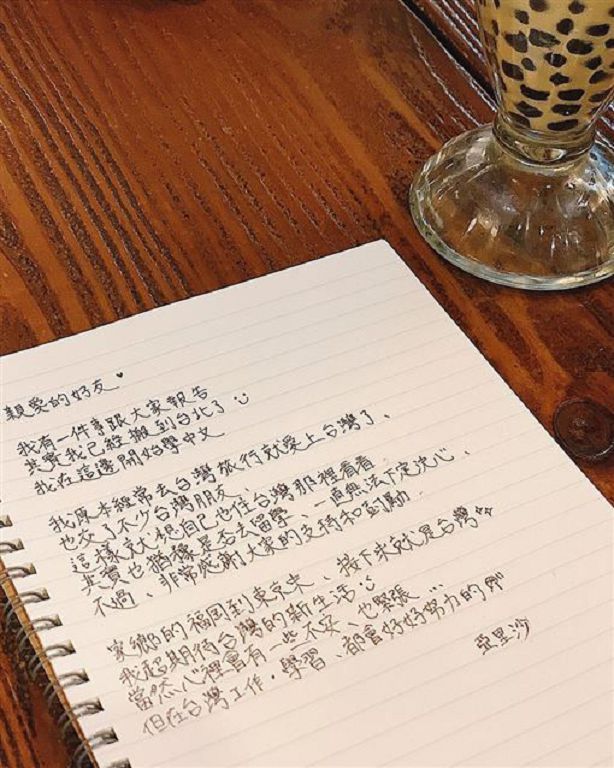 親愛的好友♥
我有一件事跟大家報告
其實我已經搬到台北了
我在這邊開始學中文
我原本經常去台灣旅行就愛上台灣了、
也交了不少台灣朋友、
這樣就想自己也住台灣那裡看看
其實也猶豫是否去留學、一直無法下定決心、
不過、非常感謝大家的支持和鼓勵
家鄉的福岡到東京來、接下來就是台灣
我超期待台灣的新生活
當然心裡會有一些不安、也緊張…
但在台灣工作，學習、都會好好努力的
亞里沙